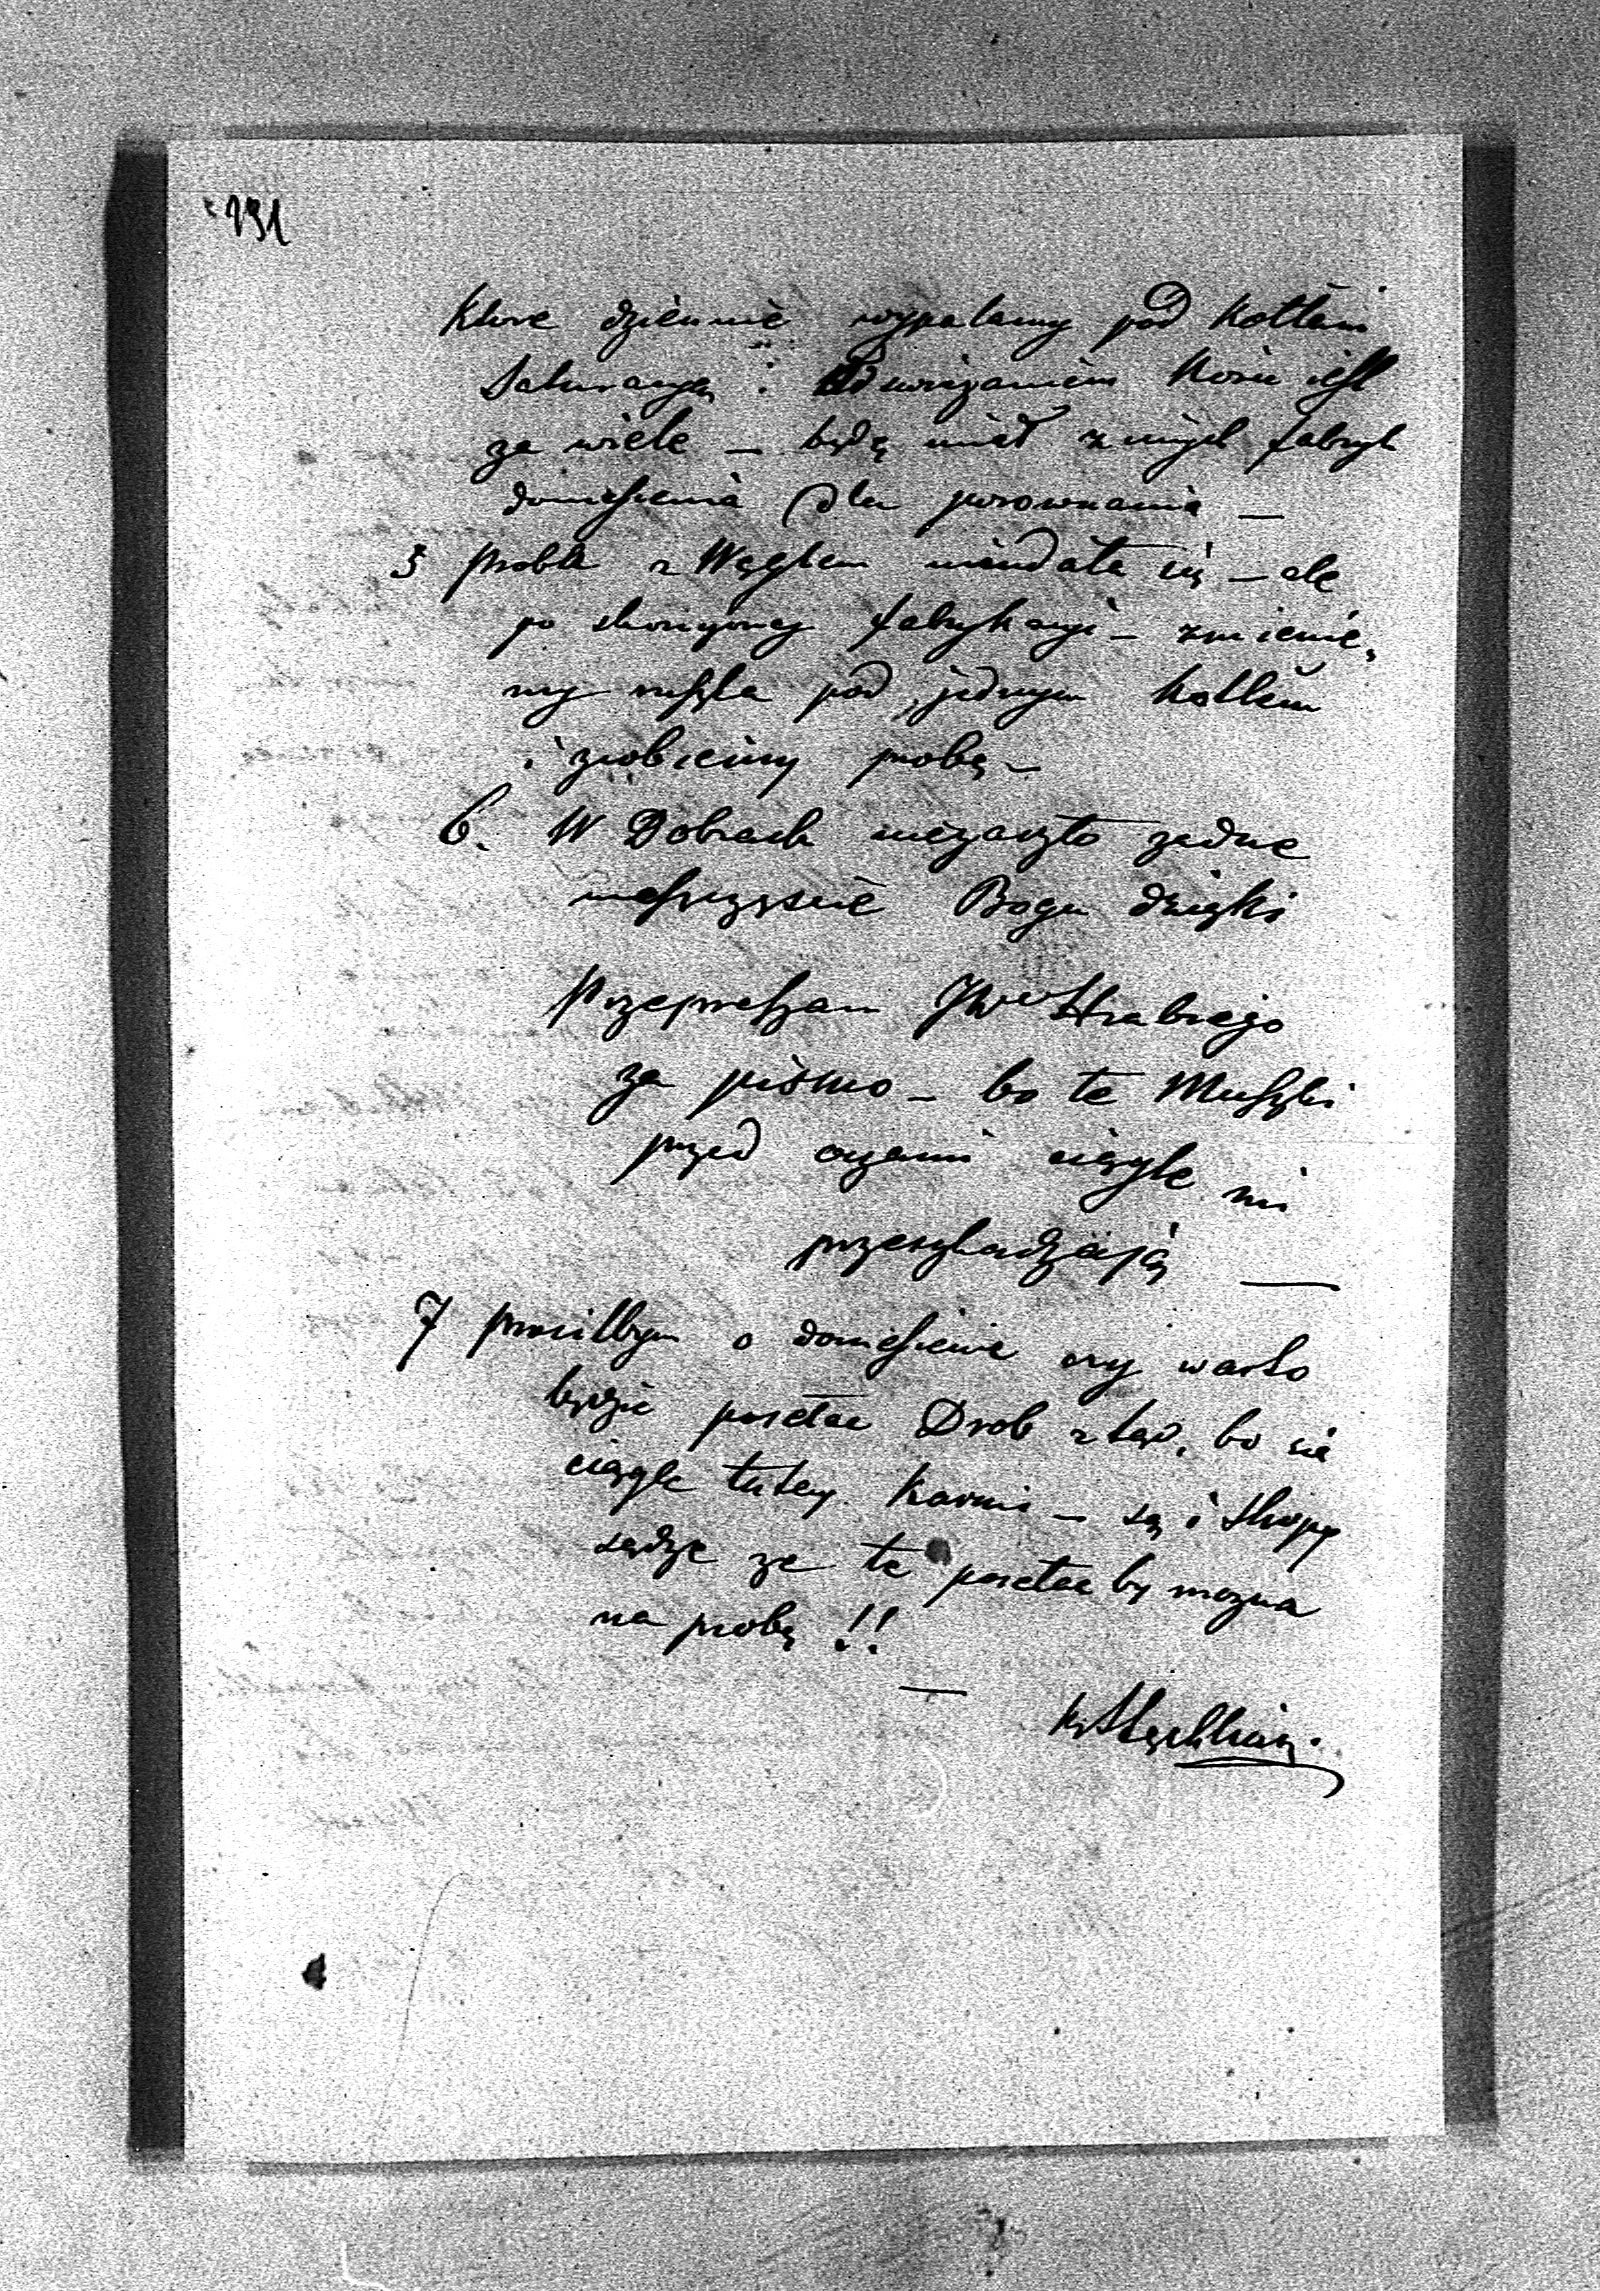 291
które dziennie wypalamy pod kotłami
Saturacyą i
za wiele – będę miał z innych fabryk
doniesienia dla porownania –
5 proba z Węglem nieudała się – ale
po skonczonej fabrykacyi – zmienie,
my ruszta pod jednym kotłem
i zrobiemy probę –
6. W Dobrach niezaszło zadne
nieszczęscie Bogu dzięki
Przepraszam JWo Hrabiego
za pismo – bo te Muszki
przed oczami ciągle mi
przeszkadzają —
7 prosilbym o doniesienie czy warto
będzie posełac Drob ztąd, bo się
ciągle tutej karmi – są i Skopy
sądzę ze te posełac by mozna
na probę !!
—